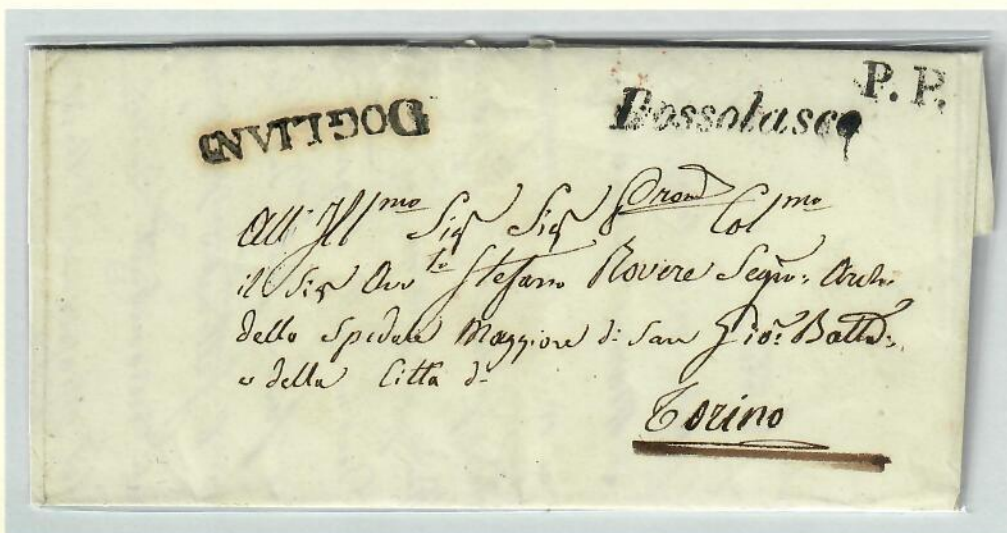 P. P.
DOGLIANI Bossolasco
All' Ill.mo Sig.r Sig.r Pron Col.mo
il Sig.r Avv.to Stefano Rovere Segr.o Arch.
dello Spedale Maggiore di San Gio: Batta:
e della Città di
Torino